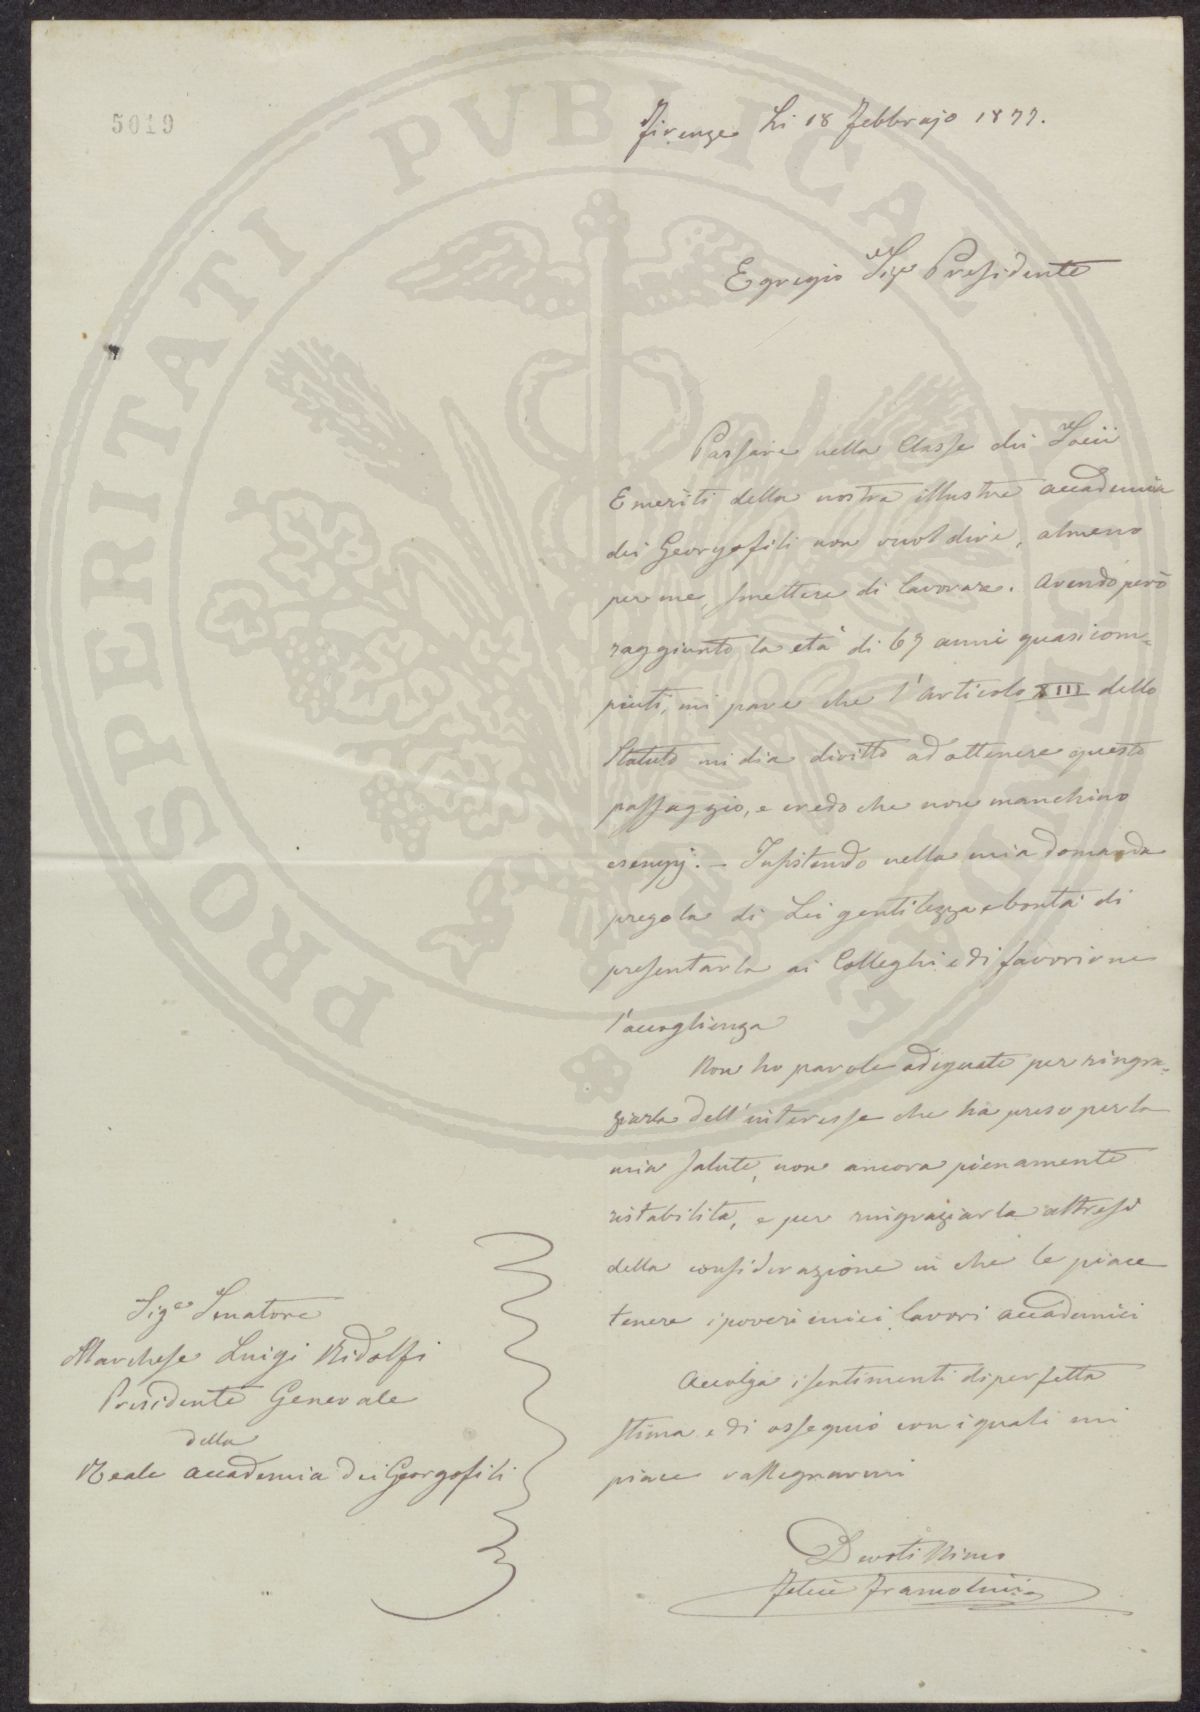 5019
Firenze li 18 Febbrajo 1877.
Egregio Sigr Presidente
Passare nella Classe dei Socii
Emeriti della nostra illustre accademia
dei Georgofili non vuol dire, almeno
per me, smettere di lavorare. Avendo però
raggiunto la età di 67 anni quasi com-
piuti, mi pare che l'articolo XIII dello
Statuto mi dia diritto ad ottenere questo
passaggio, e credo che non manchino
esempj. — Insistendo nella mia domanda
prego la di Lei gentilezza e bontà di
presentarla ai Colleghi e di favorirne
l'accoglienza
Non ho parole adeguate per ringra-
ziarla dell'interesse che ha preso per la
mia salute, non ancora pienamente
ristabilita, e per ringraziarla altresì
della considerazione in che le piace
tenere i poveri miei lavori accademici
Accolga i sentimenti di perfetta
stima e di ossequio con i quali mi
piace rassegnarmi
Devotissimo
Felice
Sigre Senatore
Marchese Luigi Ridolfi
Presidente Generale
della
Reale accademia dei Georgofili
PROSPERITATI PVBLICAE AVGENDAE